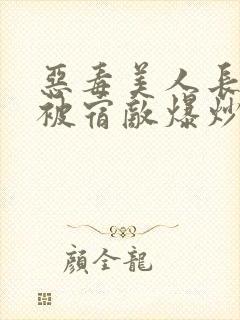 惡毒美人長
被宿敵爆炒
顔全龍